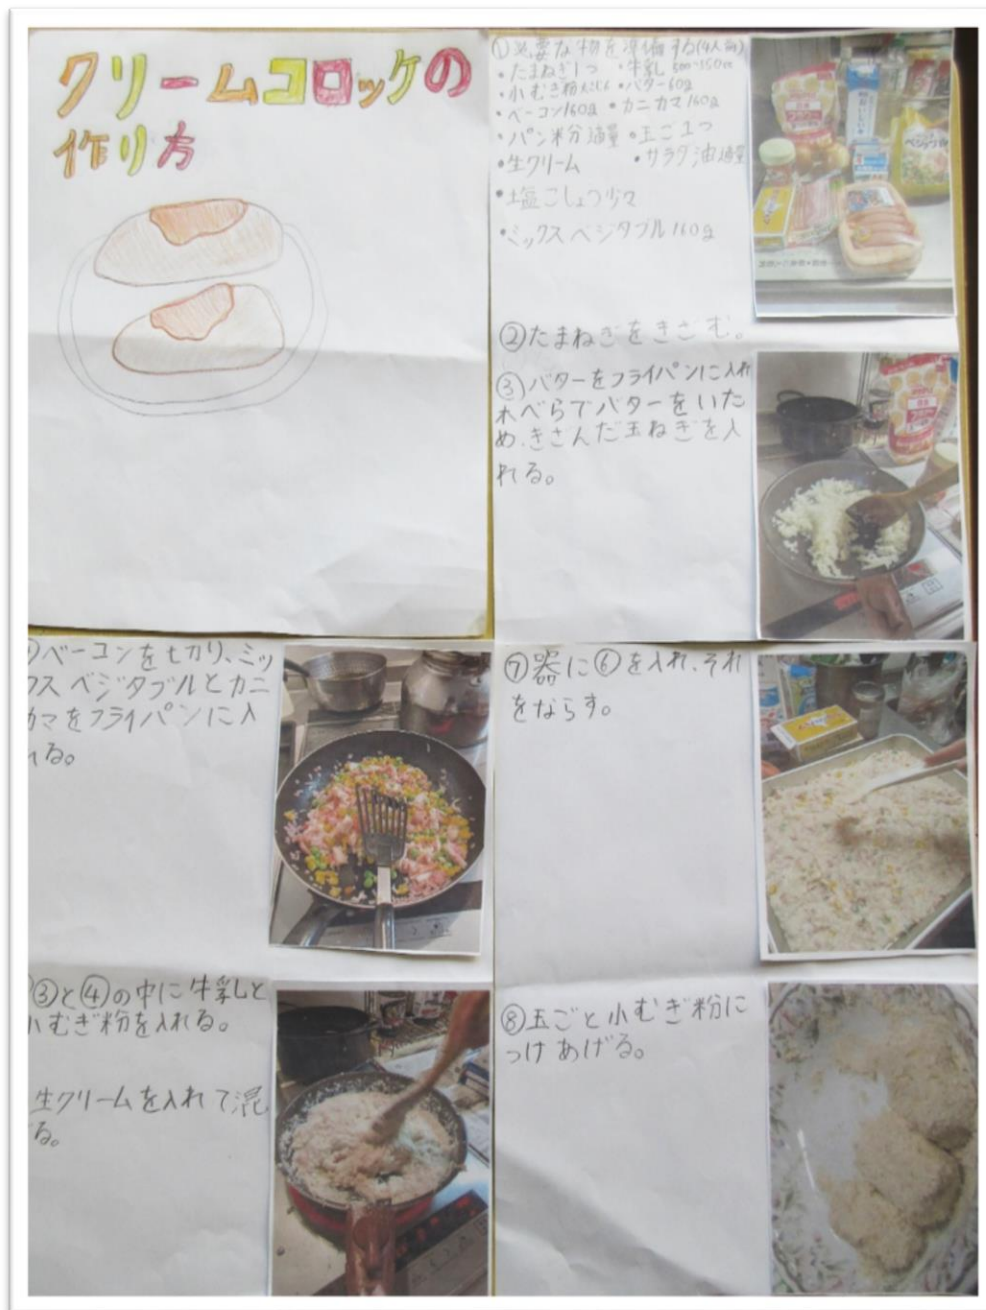 クリームコロッケの
作り方
①必要な物を準備する(4人前)
・たまねぎ1つ ・牛乳
・小むぎ粉 ・バター60g
・ベーコン160g ・カニカマ160g
・パン米分適量 ・玉ご1つ
・生クリーム ・サラダ油適量
・塩こしょう少々
・ミックスベジタブル160g
②たまねぎをきざむ。
③バターをフライパンに入れ
木べらでバターをいた
め、きざんだ玉ねぎを入
れる。
ベーコンを切り、ミッ
クスベジタブルとカニ
カマをフライパンに入
れる。
③と④の中に牛乳と
小むぎ粉を入れる。
生クリームを入れて混
る。
⑦器に⑥を入れ、それ
をならす。
⑧玉ごと小むぎ粉に
つけあげる。